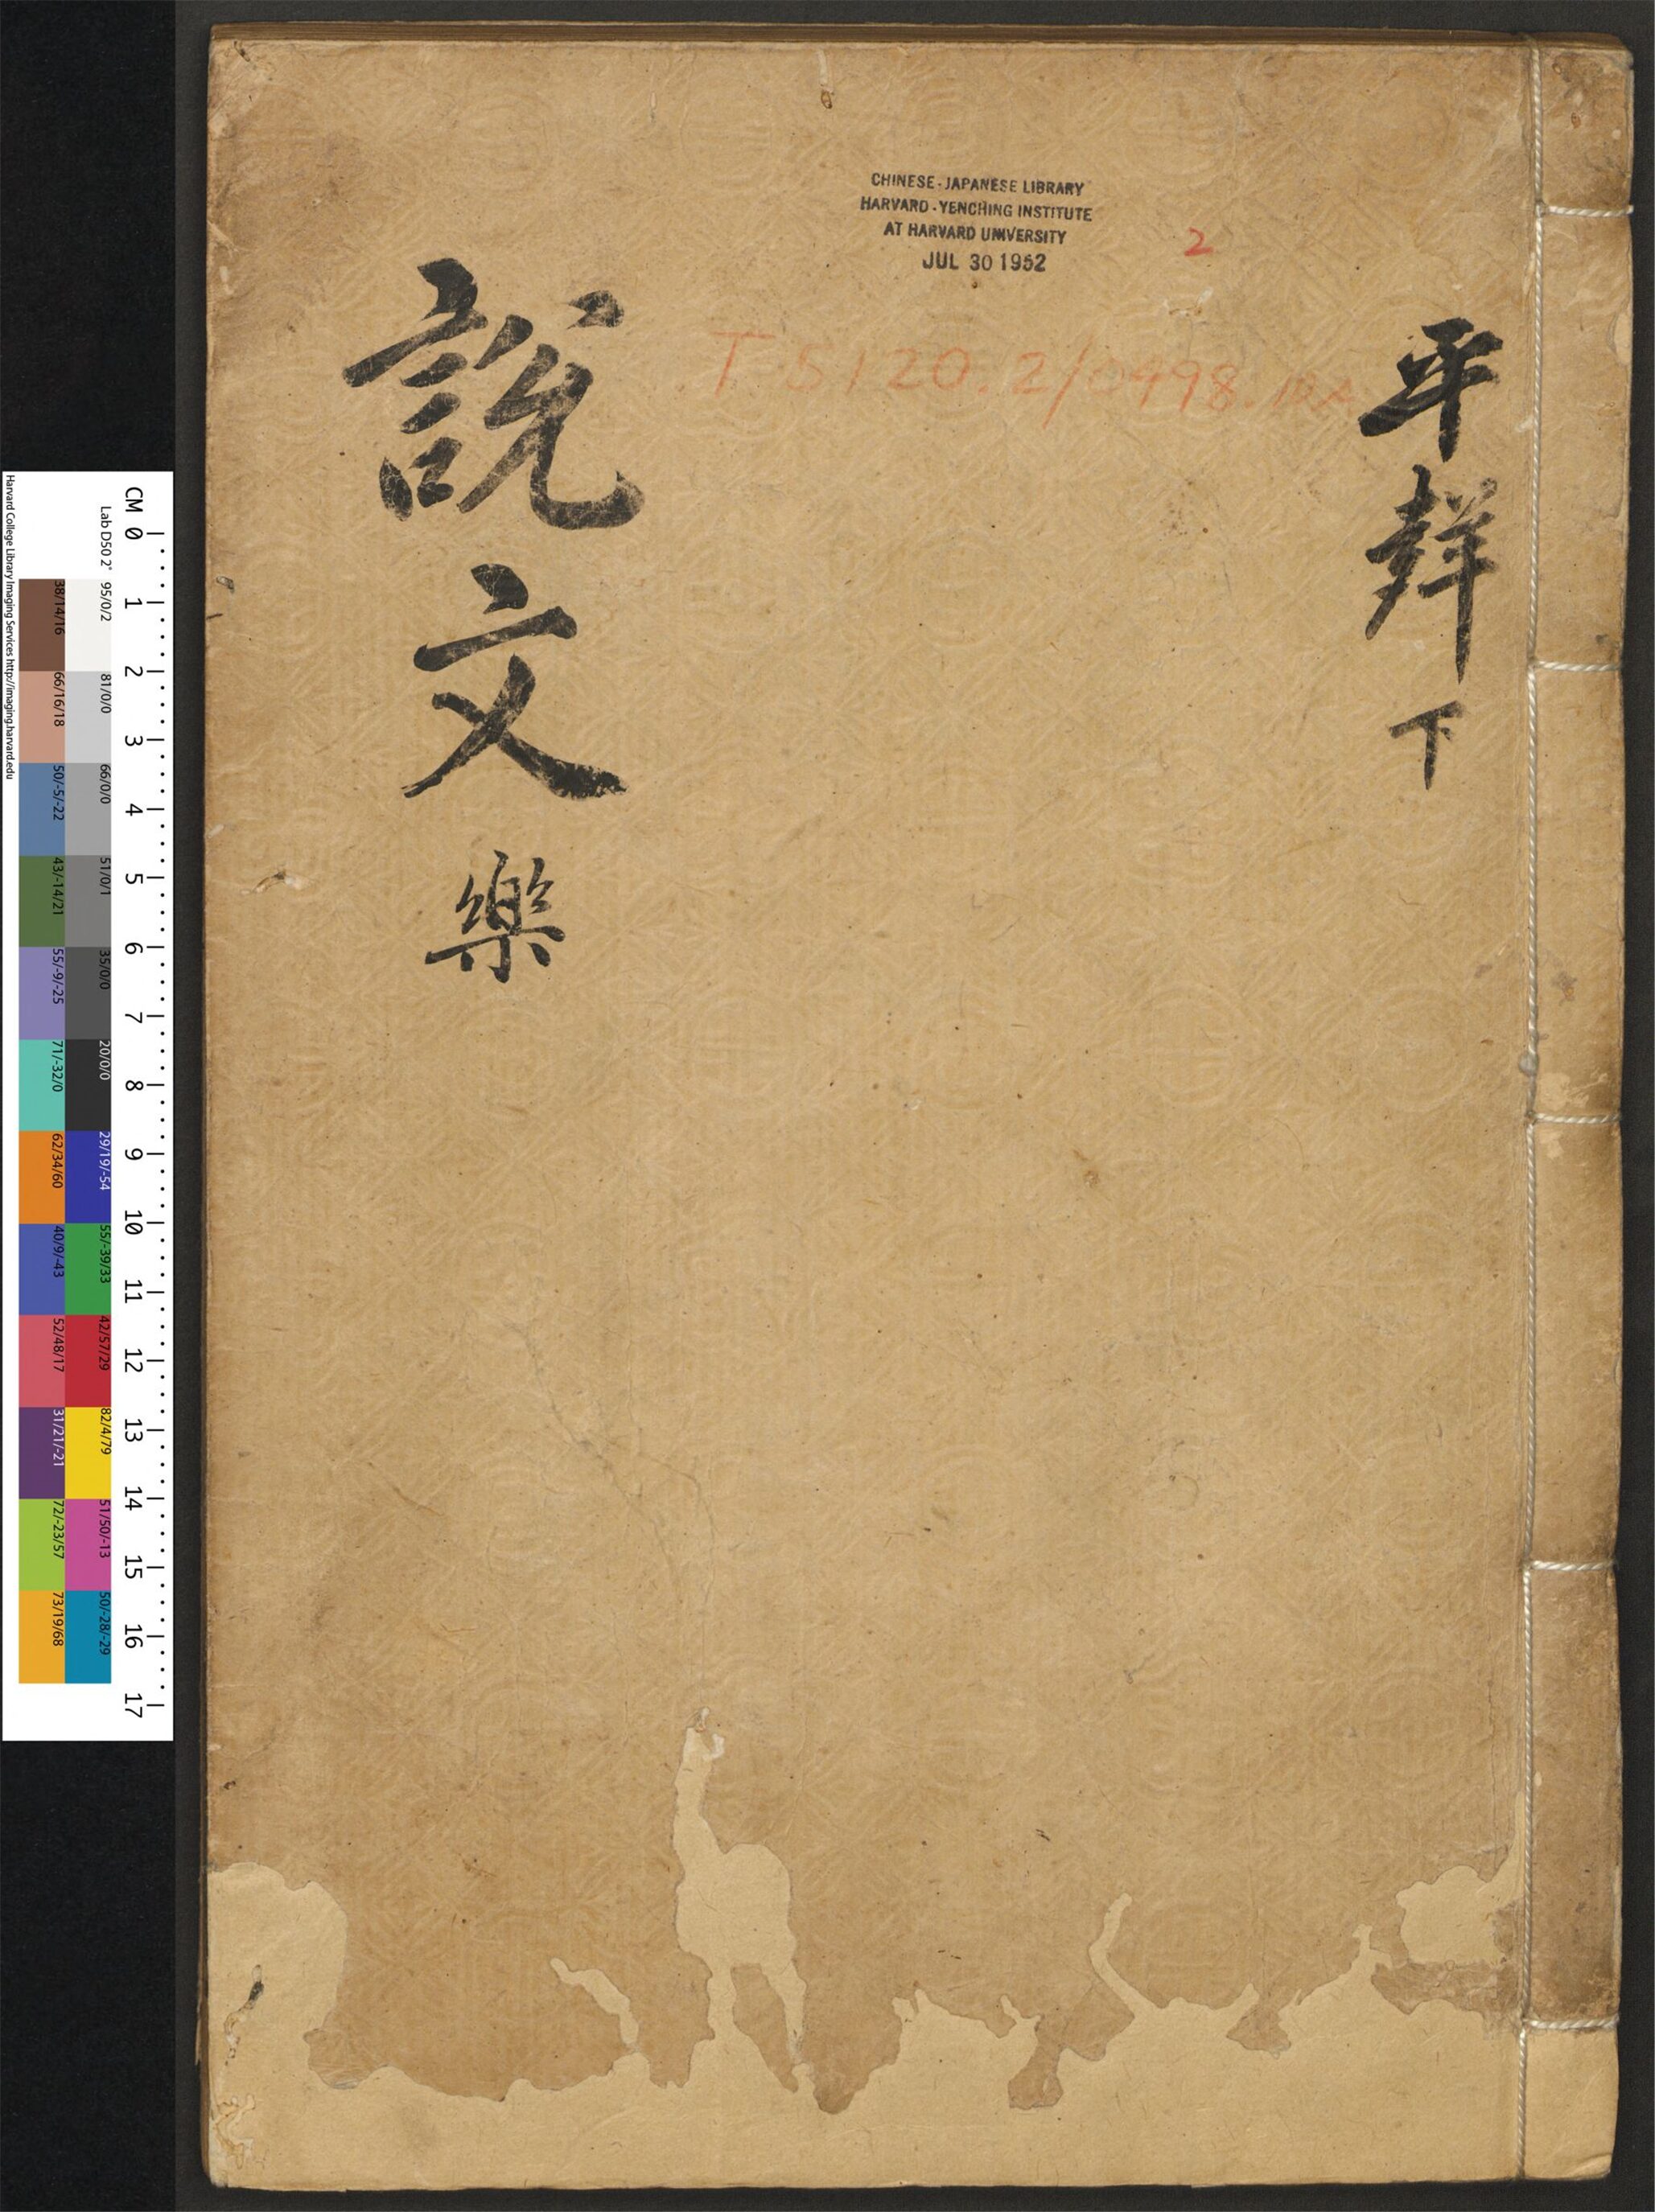 平聲下
CHINESE-JAPANESE LIBRARY
HARVARD-YENCHING INSTITUTE
AT HARVARD UNIVERSITY
JUL 30 1952
2
T 5120.2/0498.
說文
樂
CM 0 1 2 3 4 5 6 7 8 9 10 11 12 13 14 15 16 17
Lab D50 2° 95/0/2 81/0/0 66/0/0 51/0/1 35/0/0 20/0/0 29/19/-54 55/-39/33 42/57/29 82/4/79 51/50/-13 50/-28/-29
38/14/16 66/16/18 50/-5/-22 43/-14/21 55/-9/-25 71/-32/0 62/34/60 40/9/-43 52/48/17 31/21/-21 72/-23/57 73/19/68
Harvard College Library Imaging Services http://imaging.harvard.edu